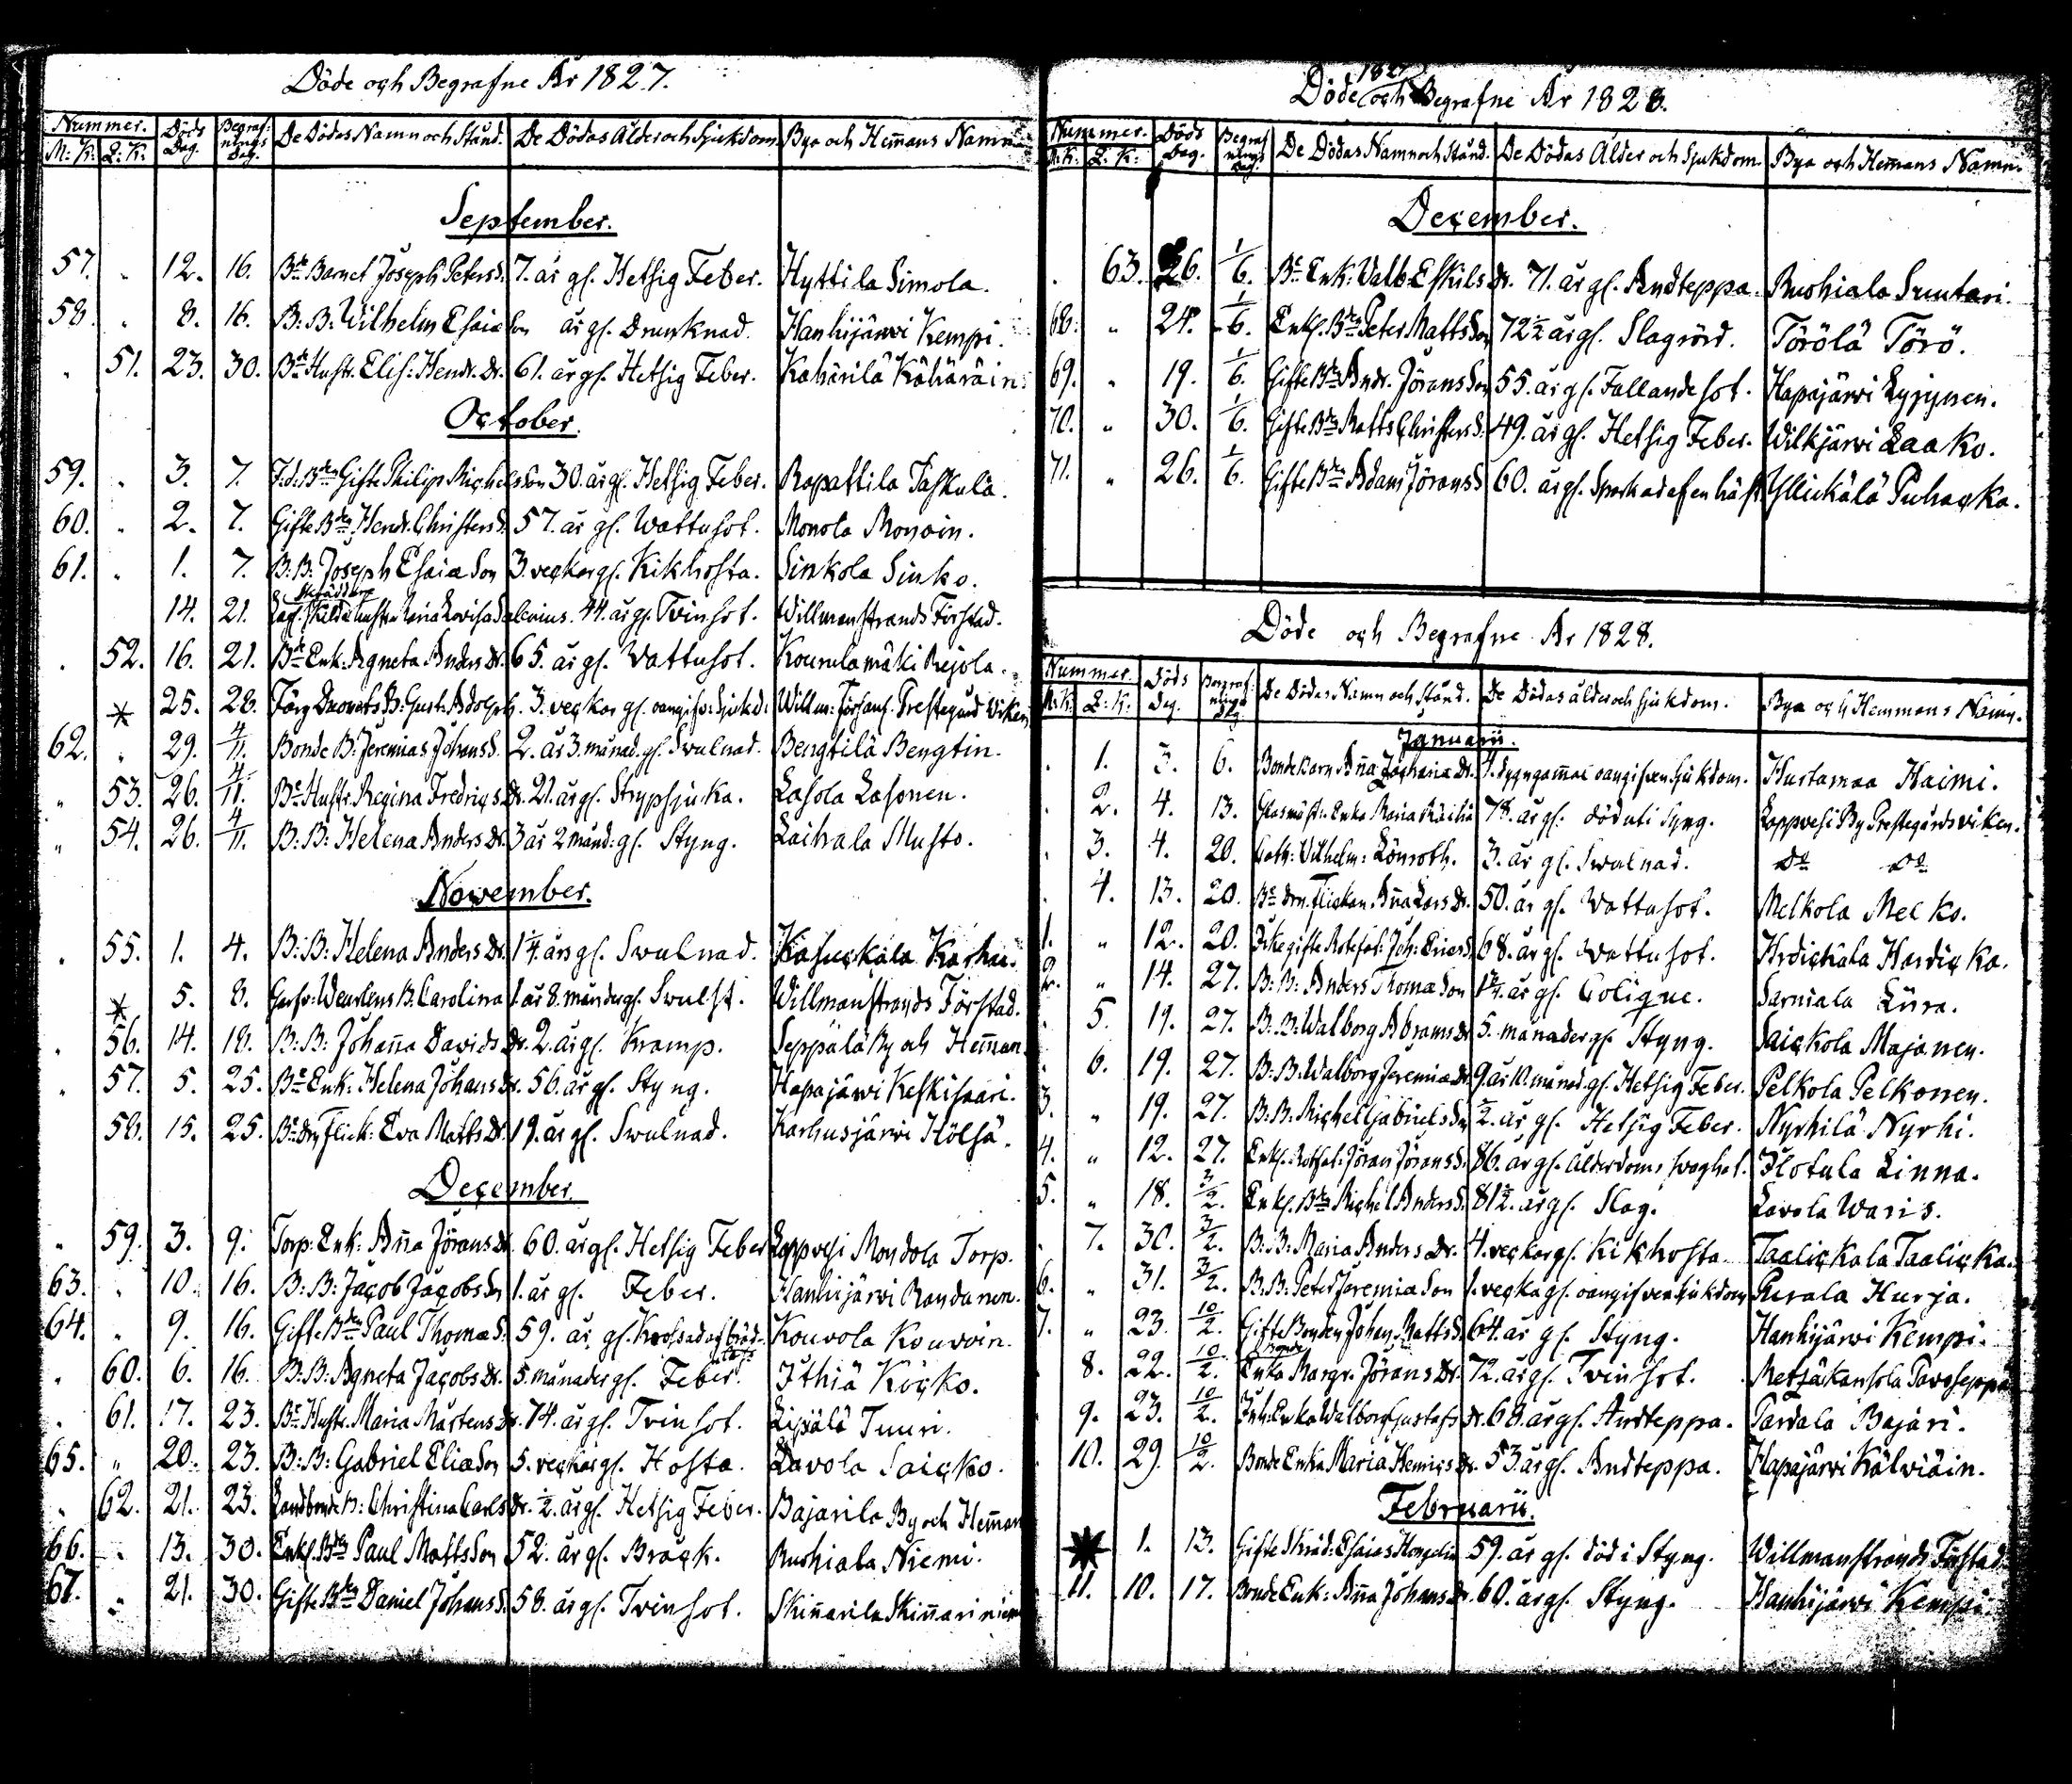 Döde och Begrafne År 1827.
Nummer. Döds Dag. Begraf-nings Dag. De Dödas Namn och Stånd. De Dödas Ålder och Sjukdom Bya och Hem̄ans Namn
M: K: Q: K:
September.
57. " 12. 16. Bde Barnet Joseph Peters S. 7. år gl. Hetsig Feber. Hyttila Simola.
58. " 8. 16. B: B: Wilhelm Esaiæ Son år gl. Drunknad. Hanhijärwi Kempi.
" 51. 23. 30. Bde Hustr. Elis: Hendr. Dr. 61. år gl. Hetsig Feber. Kähärilä Kähäräin.
October.
59. " 3. 7. F.d. Bden Gifte Philip Michelsson 30. år gl. Hetsig Feber. Rapattila Taskula.
60. " 2. 7. Gifte Bden Hendr. Christers S. 57. år gl. Wattusot. Monola Monoin.
61. " 1. 7. B: B: Joseph Esaiæ Son 3. veckor gl. Kikhosta. Sinkola Sinko.
14. 21. Maria Lovisa 44. år gl. Tvinsot. Willmanstrands Förstad.
" 52. 16. 21. Bde Enk: Agneta Anders Dr. 65. år gl. Vattusot. Kourulamäki Reijola.
* 25. 28. B: Gust: Adolph. 3. veckor gl. oangifv: Sjukd: Willm: Förstad. Prestegård Viken
62. " 29. 4/11. Bonde B: Jeremias Johans S. 2. år 3. månad. gl. Swulnad. Bengtilä Bengtin.
" 53. 26. 4/11. Be Hustr. Regina Fredrics Dr. 21. år gl. Strypsjuka. Lasola Lasonen.
" 54. 26. 4/11. B: B: Helena Anders Dr. 3 år 2 månd: gl. Styng. Laihala Musto.
November.
" 55. 1. 4. B: B: Helena Anders Dr. 1 1/4 års gl. Swulnad. Kasuckala Karhu.
* 5. 8. B. Carolina 1. år 8. månder gl. Swulst. Willmanstrands Förstad.
" 56. 14. 18. B: B: Johan̄a Davids Dr. 2. år gl. Kramp. Seppälä By och Hem̄an.
" 57. 5. 25. Be Enk: Helena Johans Dr. 56. år gl. Styng. Hapajärwi Keskisaari.
58. 15. 25. Be Drn Flick: Eva Matts Dr. 19. år gl. Swulnad. Karhusjärwi Hölsä.
December.
" 59. 3. 9. Torp: Enk: An̄a Jörans Dr. 60. år gl. Hetsig Feber Lappvesi Mondola Torp.
63. " 10. 16. B: B: Jacob Jacobs Sn 1. år gl. Feber. Hanhijärwi Randanen.
64. " 9. 16. Gifte Bden Paul Thomæ S. 59. år gl. Krossad af bröd- Kouvola Kouvoin.
" 60. 6. 16. B: B: Agneta Jacobs Dr. 5. månader gl. Feber. Ithiä Kicko.
" 61. 17. 23. Be Hustr. Maria Mårtens Dr. 74. år gl. Tvinsot. Lipälä Tuuri.
65. " 20. 23. B: B: Gabriel Eliæ Son 5. veckor gl. Hosta. Lavola Saicko.
" 62. 21. 23. Landbonde B: Christina Carls Dr. 1/2. år gl. Hetsig Feber. Bajarila By och Hem̄an
66. " 13. 30. Enkl. Bden Paul Matts Son 52. år gl. Bråck. Ruohiala Niemi.
67. " 21. 30. Gifte Bden Daniel Johans S. 58. år gl. Tvinsot. Skin̄arila Skin̄ariniemi
Döde 1827 och Begrafne År 1828.
Nummer. Döds Dag. Begraf-nings Dag. De Dödas Namn och Stånd. De Dödas Ålder och Sjukdom. Bya och Hem̄ans Namn.
M: K: Q: K:
December.
" 63. 26. 1/6. Be Enk: Valb: Eskils Dr. 71. år gl. Andteppa. Ruohiala Suutari.
68. " 24. 1/6. Enkl. Bden Peter Matts Son 72 1/2 år gl. Slagrörd. Törölä Törö.
69. " 19. 1/6. Gifte Bden Andr. Jörans Son 55. år gl. Fallandesot. Hapajärwi Lyyynen.
70. " 30. 1/6. Gifte Bden Matts Christers S. 49. år gl. Hetsig Feber. Wilkjärwi Laako.
71. " 26. 1/6. Gifte Bden Adam Jörans S 60. år gl. Sparkad af en häst. Yllickälä Puhacka.
Döde och Begrafne År 1828.
Nummer. Döds Dag. Begraf-nings Dag. De Dödas Namn och Stånd. De Dödas ålder och Sjukdom. Bya och Hemmans Namn.
M: K. Q: K:
Januarii.
" 1. 3. 6. Bonde Barn An̄a Zachariæ Dr. 4. dygn gam̄al oangifven Sjukdom. Hurtamaa Haimi.
" 2. 4. 13. Enka Maria 78. år gl. död uti Styng. Lappvesi By Prestegårds viken.
" 3. 4. 20. Cath: Vilhelm: Lönroth. 3. år gl. Swulnad. Do Do
" 4. 13. 20. Be Drn. Flickan An̄a Lars Dr. 50. år gl. Vattusot. Melkola Melko.
1. " 12. 20. Icke gifte Joh: Erics S. 68. år gl. Wattusot. Hrdickala Hardicka.
2. " 14. 27. B: B: Anders Thomæ Son 1 1/4. år gl. Colique. Sarniala Liira.
" 5. 19. 27. B: B: Walborg Abrams Dr 5. månader gl. Styng. Saickola Majanen.
" 6. 19. 27. B: B: Walborg Jeremiæ Dr. 9. år 10. månad. gl. Hetsig Feber. Pelkola Pelkonen.
3. " 19. 27. B: B: Michel Gabriels Sn 1/2. år gl. Hetsig Feber. Nyrhilä Nyrhi.
4. " 12. 27. Enkl. Jöran Jörans S. 86. år gl. Ålderdoms svaghet. Ilotula Linna.
5. " 18. 3/2. Enkl. Bden Michel Anders S. 81 1/2. år gl. Slag. Lavola Waris.
" 7. 30. 3/2. B: B: Maria Anders Dr. 4. veckor gl. Kikhosta Taalickala Taalicka.
6. " 31. 3/2. B: B: Peter Jeremiæ Son 1. vecka gl. oangifven Sjukdom Purala Hurja.
7. " 23. 10/2. Gifte Bonden Johan Matts S. 64. år gl. Styng. Hanhijärwi Kempi.
" 8. 22. 10/2. Bonde Enka Margr: Jörans Dr. 72. år gl. Tvinsot. Metsäkansola Pavoseppä
" 9. 23. 10/2. Enka Walborg Gustafs Dr. 68. år gl. Andteppa. Partala Bajari.
" 10. 29. 10/2. Bonde Enka Maria Henrics Dr. 53. år gl. Andteppa. Hapajärwi Kälviäin.
Februarii.
* 1. 13. Gifte Skräd: Esaias 59. år gl. död i Styng. Willmanstrands Förstad.
" 11. 10. 17. Bonde Enk: An̄a Johans Dr. 60. år gl. Styng. Hanhijärwi Kempi.